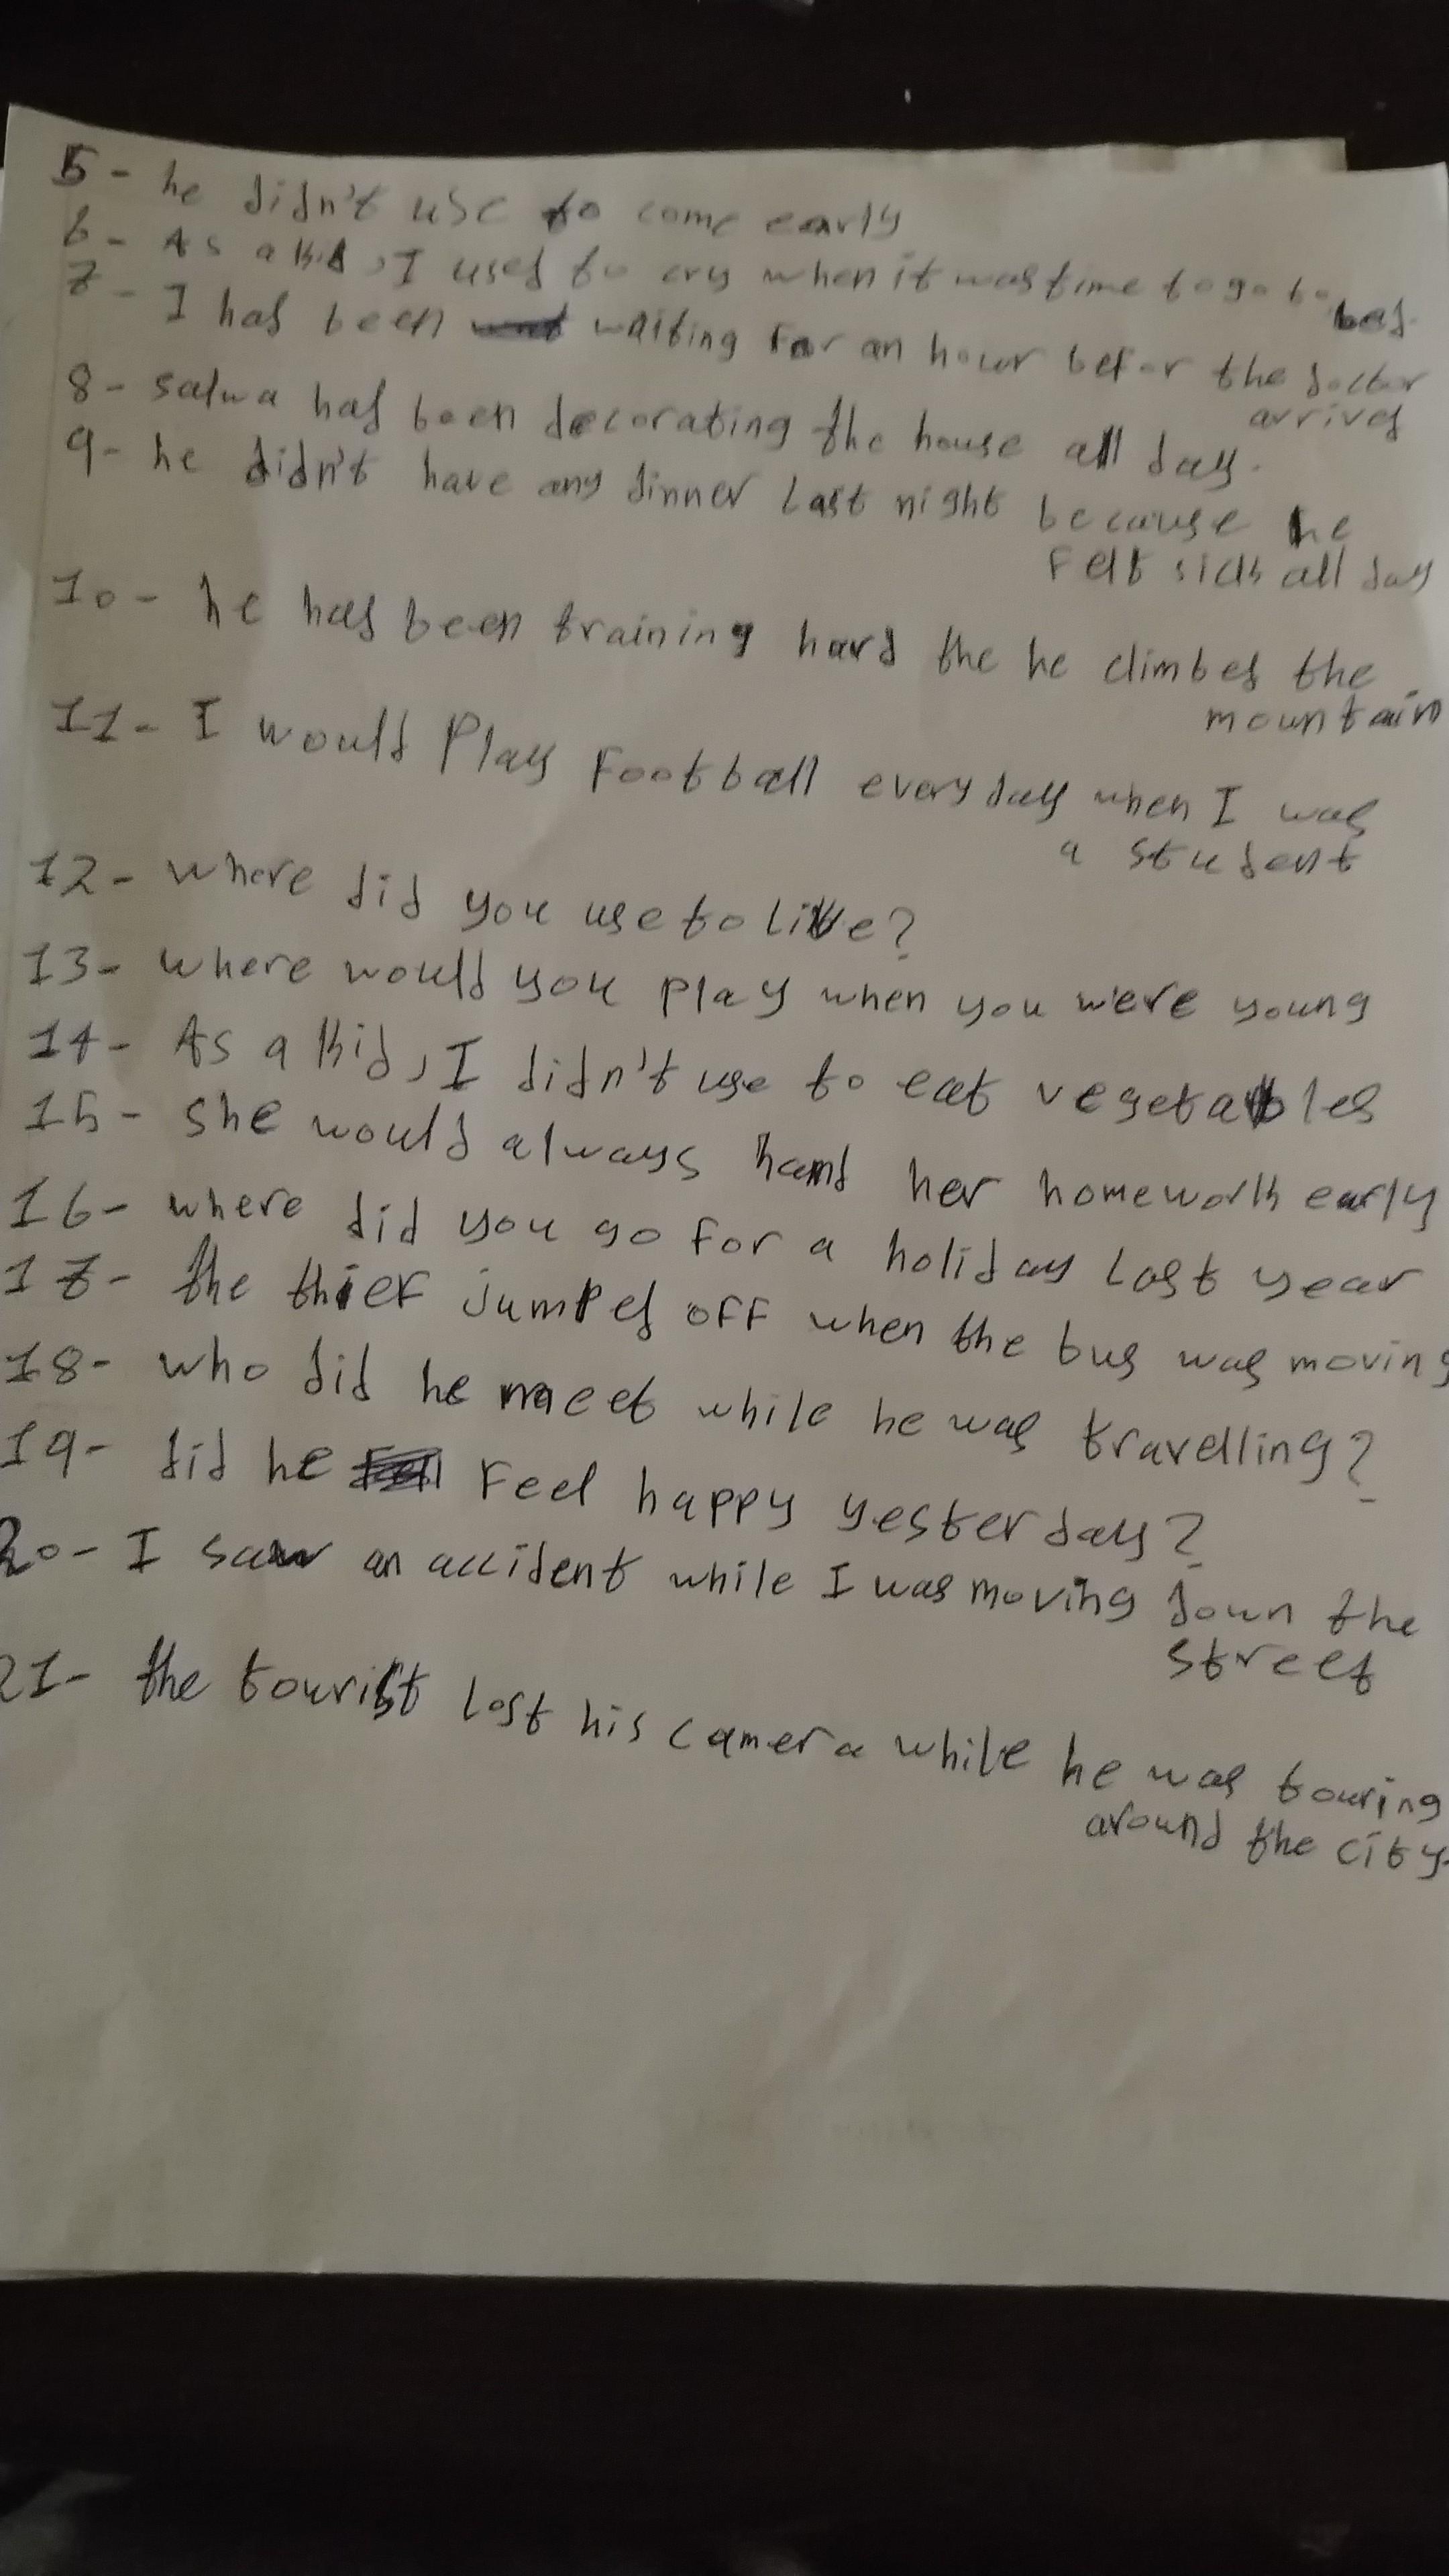 5- he didn't use to come early
6- As a kid, I used to cry when it was time to go to bed.
7- I had been waiting for an hour befor the doctor
arrived
8- salwa had been decorating the house all day.
9- he didn't have any dinner last night because he
felt sick all day
10- he had been training hard the he climbed the
mountain
11- I would play football everyday when I was
a student
12- where did you use to live?
13- where would you play when you were young
14- As a kid, I didn't use to eat vegetables
15- she would always hand her homework early
16- where did you go for a holiday last year
17- the thief jumped off when the bus was moving
18- who did he meet while he was travelling?
19- did he feel happy yesterday?
20- I saw an accident while I was moving down the
street
21- the tourist lost his camera while he was touring
around the city.